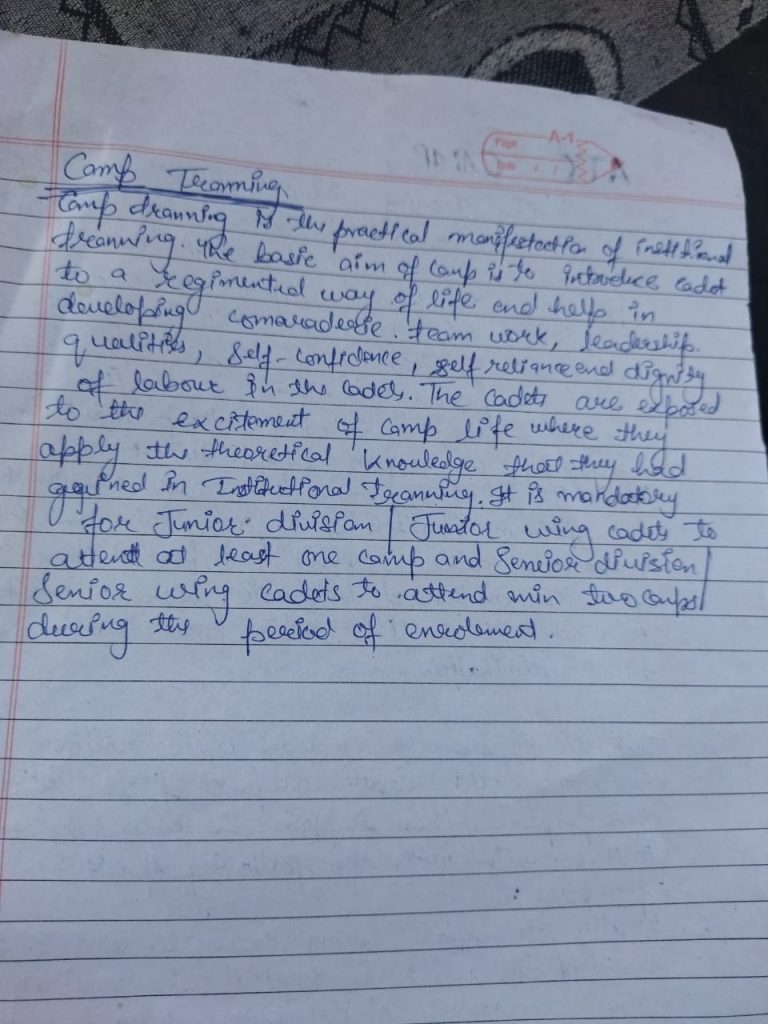 A-1
Page
Date / /
Camp Tranning
Camp dranning is the practical manifestection of institional
tranning. The basic aim of camp is to introduce cadet
to a regimented way of life and help in
developing comaraderie. team work, leadership.
qualities, self-confidence, self reliance and dignity
of labour in the cadets. The cadets are exposed
to the excitement of camp life where they
apply the theoretical knowledge that they had
gained in Institutional Tranning. It is mandatory
for Junior division / Junior wing cadets to
attend at least one camp and Senior division /
Senior wing cadets to attend min two camps
during the period of enrolement.